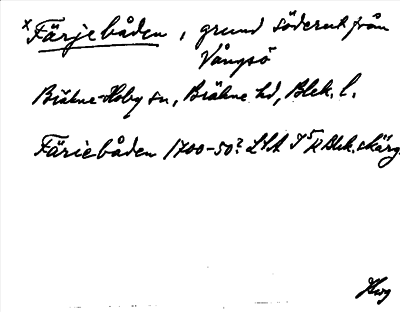 x Färjebåden, grund söderut från
Vångsö
Bräkne-Hoby sn, Bräkne hd, Blek. l.
Färiebåden 1700-50? LSA I 5 K Blek. skärg.